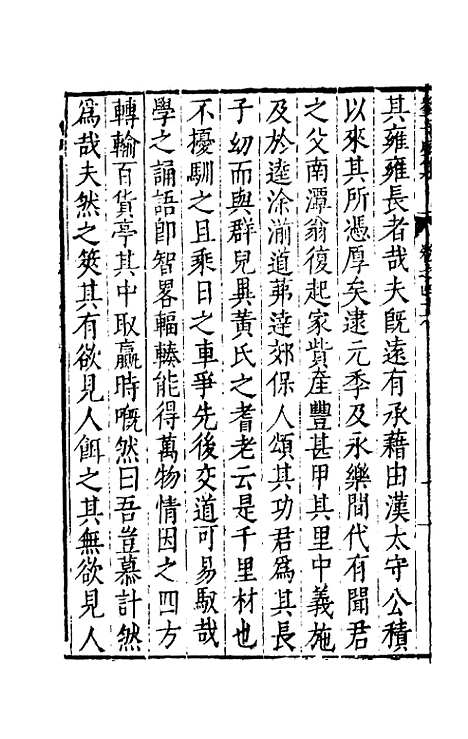 其雍雍長者哉夫旣遠有承藉由漢太守公積
以來其所憑厚矣逮元季及永樂間代有聞君
之父南潭翁復起家貲產豐甚甲其里中義施
及於逵涂湔道茀達郊保人頌其功君爲其長
子幼而與群兒異黃氏之耆老云是千里材也
不擾馴之且乘日之車爭先後交道可易馭哉
學之誦語卽智畧輻輳能得萬物情因之四方
轉輸百貨亭其中取贏時嘅然曰吾豈慕計然
爲哉夫然之筴其有欲見人餌之其無欲見人